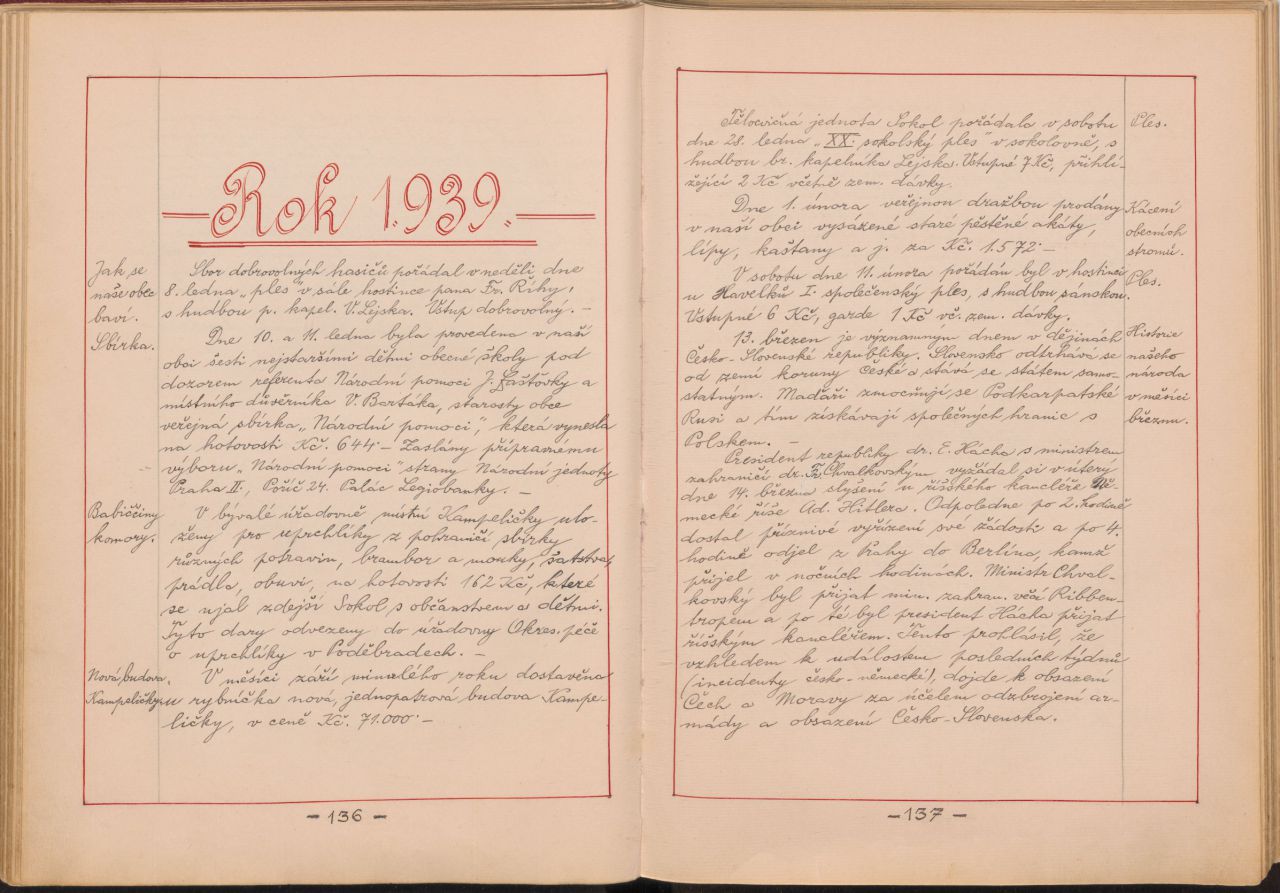 Rok 1939.
Jak se
naše obec
baví.
Sbor dobrovolných hasičů pořádal v neděli dne
8. ledna „ples" v sále hostince pana Fr. Řihy,
s hudbou p. kapel. V. Lejska. Vstup dobrovolný. –
Sbírka.
Dne 10. a 11. ledna byla provedena v naší
obci šesti nejstaršími dětmi obecné školy pod
dozorem referenta Národní pomoci J. Laštovky a
místního důvěrníka V. Bartáka, starosty obce
veřejná sbírka „Národní pomoci", která vynesla
na hotovosti Kč. 644·– Zaslány přípravnému
výboru „Národní pomoci" strany Národní jednoty
Praha II., Poříč 24. Palác Legiobanky. –
Babiččiny
komory.
V bývalé úřadovně místní Kampeličky ulo-
ženy pro uprchlíky z pohraničí sbírky
různých potravin, brambor a mouky, šatstva,
prádla, obuvi, na hotovosti 162 Kč, které
se ujal zdejší Sokol s občanstvem a dětmi.
Tyto dary odvezeny do úřadovny Okres. péče
o uprchlíky v Poděbradech. –
Nová budova
Kampeličky.
V měsíci září minulého roku dostavěna
u rybníčka nová, jednopatrová budova Kampe-
ličky, v ceně Kč. 71.000·–
– 136 –
Tělocvičná jednota Sokol pořádala v sobotu
dne 28. ledna „XX. sokolský ples" v sokolovně, s
hudbou br. kapelníka Lejska. Vstupné 7 Kč, přihlí-
žející 2 Kč včetně zem. dávky.
Ples.
Dne 1. února veřejnou dražbou prodány
v naší obci vysázené staré pěstěné akáty,
lípy, kaštany a j. za Kč. 1.572·–
Kácení
obecních
stromů.
V sobotu dne 11. února pořádán byl v hostinci
u Havelků I. společenský ples, s hudbou sánskou.
Vstupné 6 Kč, garde 1 Kč vč. zem. dávky.
Ples.
13. březen je významným dnem v dějinách
Česko-Slovenské republiky. Slovensko odtrhává se
od zemí koruny České a stává se státem samo-
statným. Maďaři zmocňují se Podkarpatské
Rusi a tím získávají společných hranic s
Polskem. –
Historie
našeho
národa
v měsíci
březnu.
President republiky dr. E. Hácha s ministrem
zahraničí dr. Fr. Chvalkovským vyžádal si v úterý
dne 14. března slyšení u říšského kancléře Ně-
mecké říše Ad. Hitlera. Odpoledne po 2. hodině
dostal příznivé vyřízení své žádosti a po 4.
hodině odjel z Prahy do Berlína, kamž
přijel v nočních hodinách. Ministr Chval-
kovský byl přijat min. zahran. věcí Ribben-
tropem a po té byl president Hácha přijat
říšským kancléřem. Tento prohlásil, že
vzhledem k událostem posledních týdnů
(incidenty česko-německé), dojde k obsazení
Čech a Moravy za účelem odzbrojení ar-
mády a obsazení Česko-Slovenska.
– 137 –